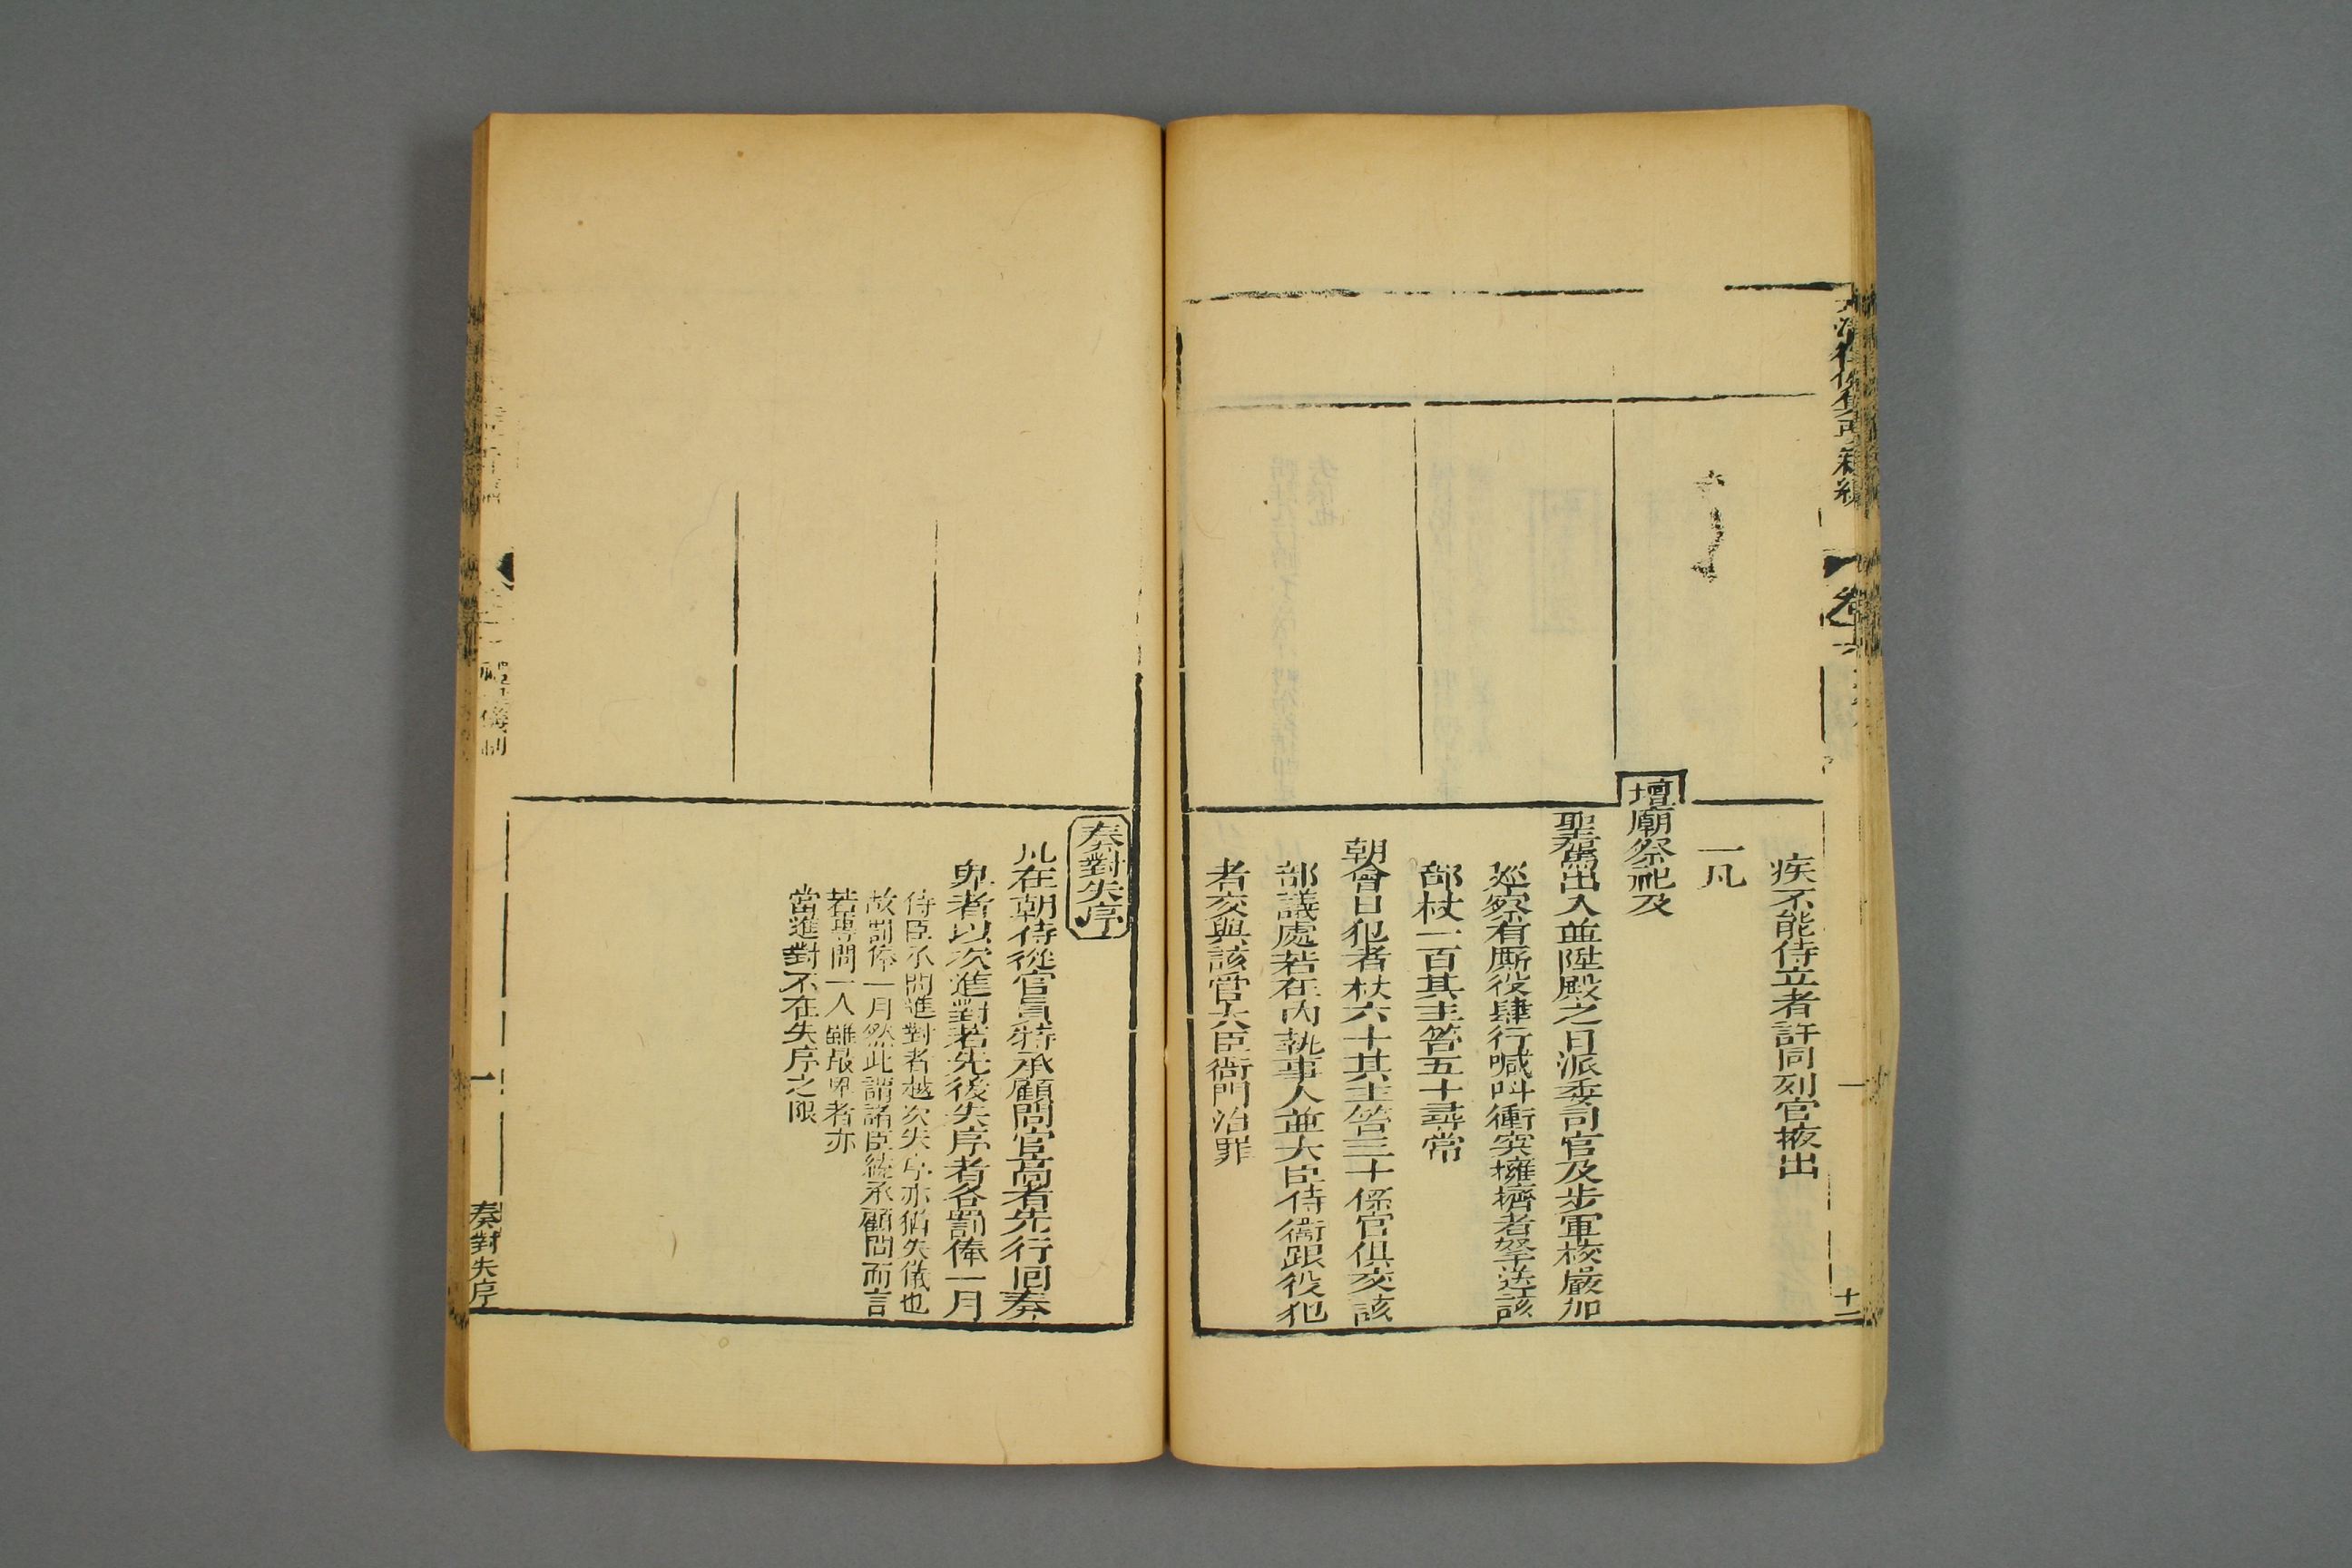 疾不能侍立者許同列官掖出
一凡
壇廟祭祀及
聖駕出入並陞殿之日派委司官及步軍校嚴加
巡察有厮役肆行喊叫衝突擁擠者拏送該
部杖一百其主笞五十尋常
朝會日犯者杖六十其主笞三十係官俱交該
部議處若在內執事人並大臣侍衞跟役犯
者交與該管大臣衙門治罪
十一
奏對失序
凡在朝侍從官員特承顧問官高者先行回奏
卑者以次進對若先後失序者各罰俸一月
侍臣承問進對者越次失序亦猶失儀也
故罰俸一月然此謂諸臣統承顧問而言
若專問一人雖最卑者亦
當進對不在失序之限
儀制
奏對失序